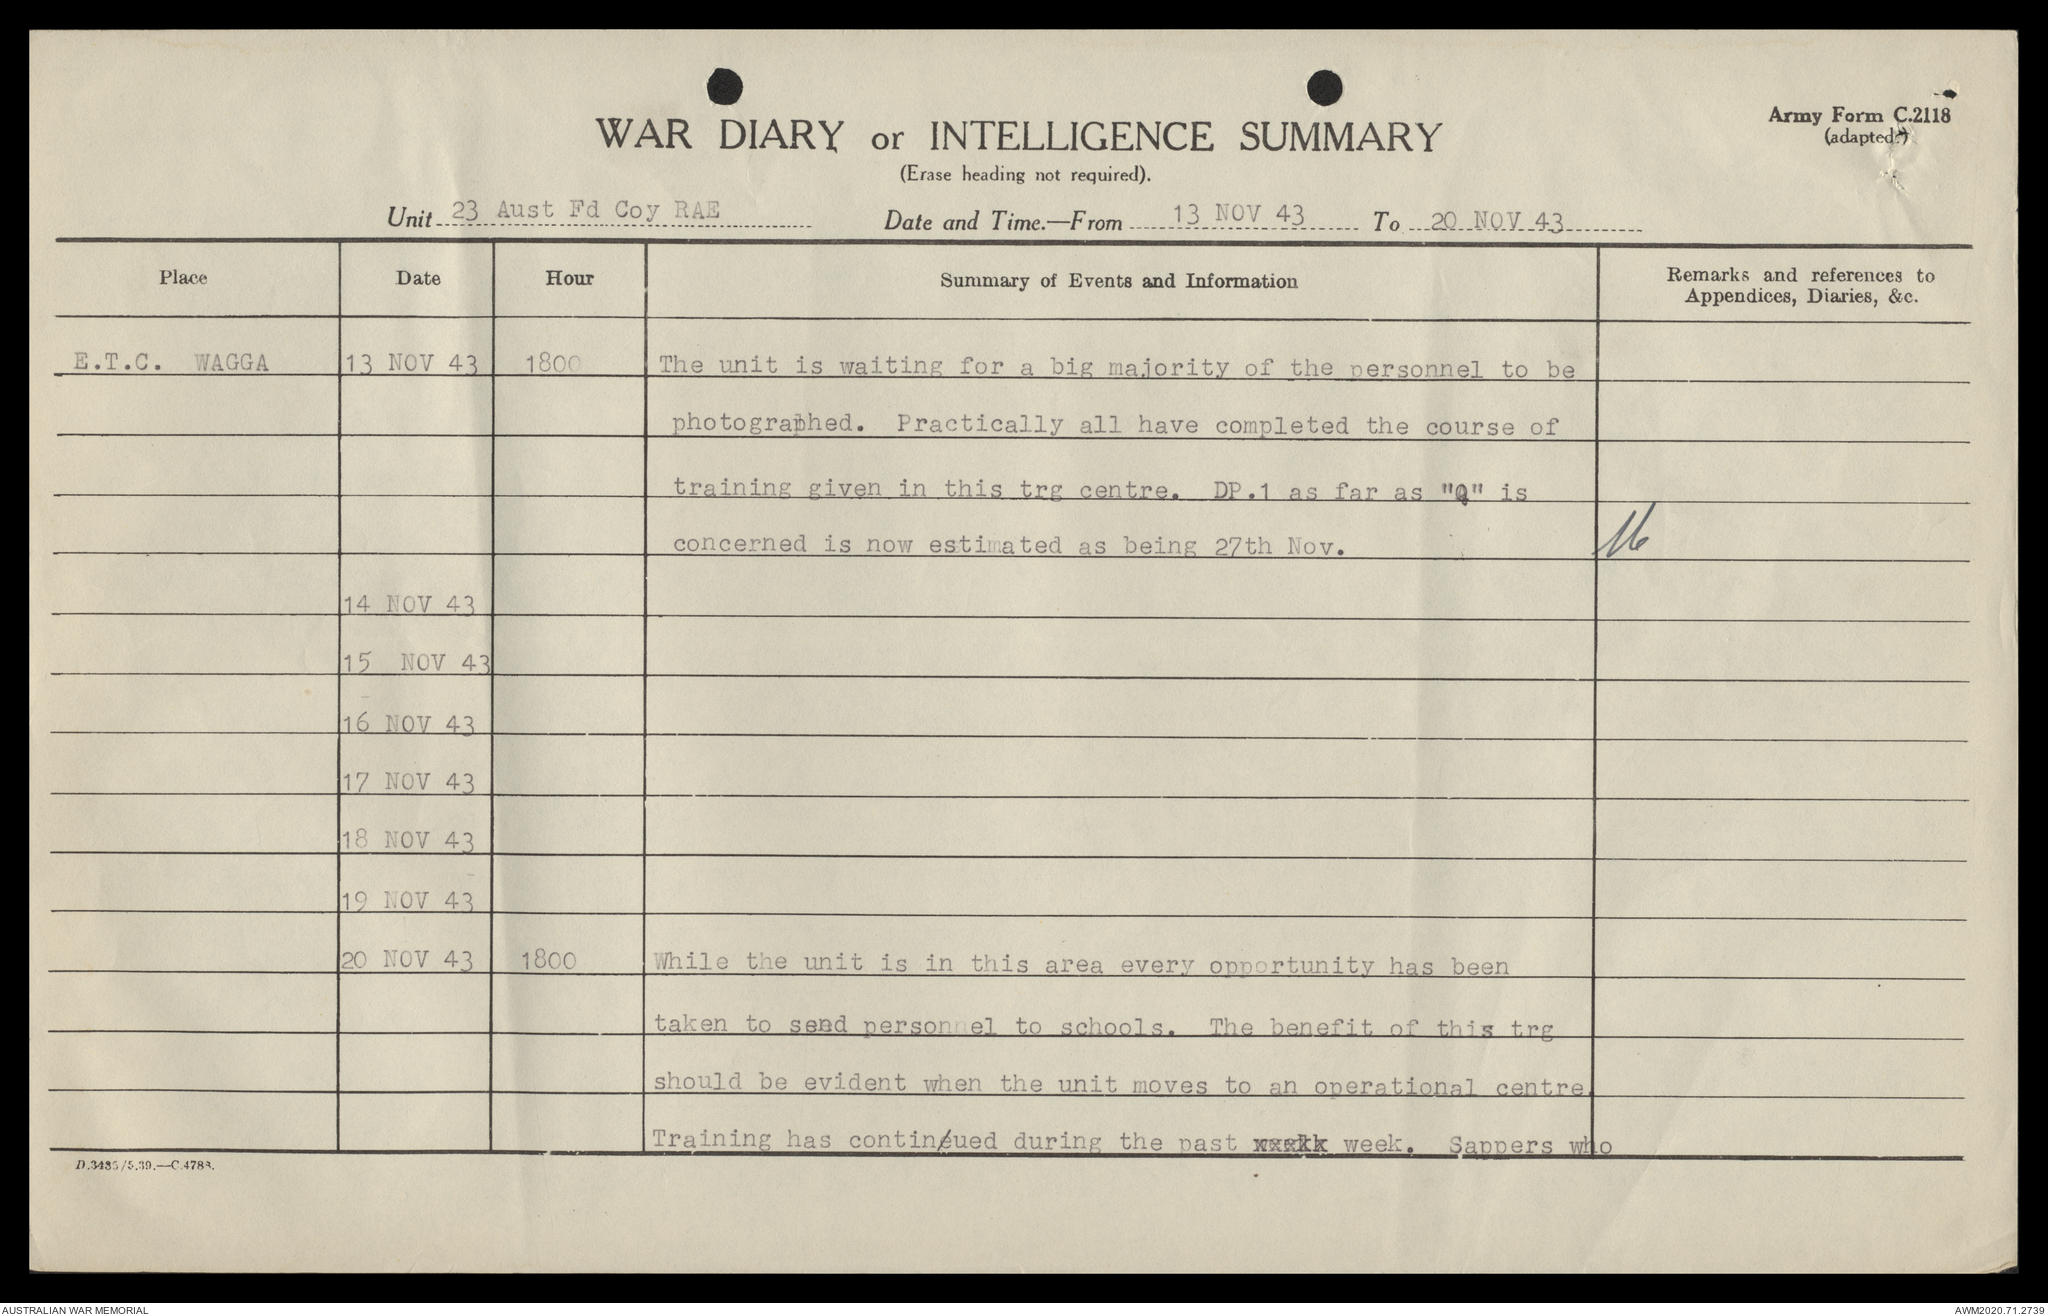 Army Form C.2118
(adapted.)
WAR DIARY or INTELLIGENCE SUMMARY
(Erase heading not required).
Unit 23 Aust Fd Coy RAE Date and Time.—From 13 NOV 43 To 20 NOV 43
Place Date Hour Summary of Events and Information Remarks and references to
Appendices, Diaries, &c.
E.T.C. WAGGA 13 NOV 43 1800 The unit is waiting for a big majority of the personnel to be
photographed. Practically all have completed the course of
training given in this trg centre. DP.1 as far as "Q" is
concerned is now estimated as being 27th Nov.
14 NOV 43
15 NOV 43
16 NOV 43
17 NOV 43
18 NOV 43
19 NOV 43
20 NOV 43 1800 While the unit is in this area every opportunity has been
taken to send personnel to schools. The benefit of this trg
should be evident when the unit moves to an operational centre.
Training has continued during the past week. Sappers who
D.3486/5.39.—C.4788.
AUSTRALIAN WAR MEMORIAL AWM2020.71.2739